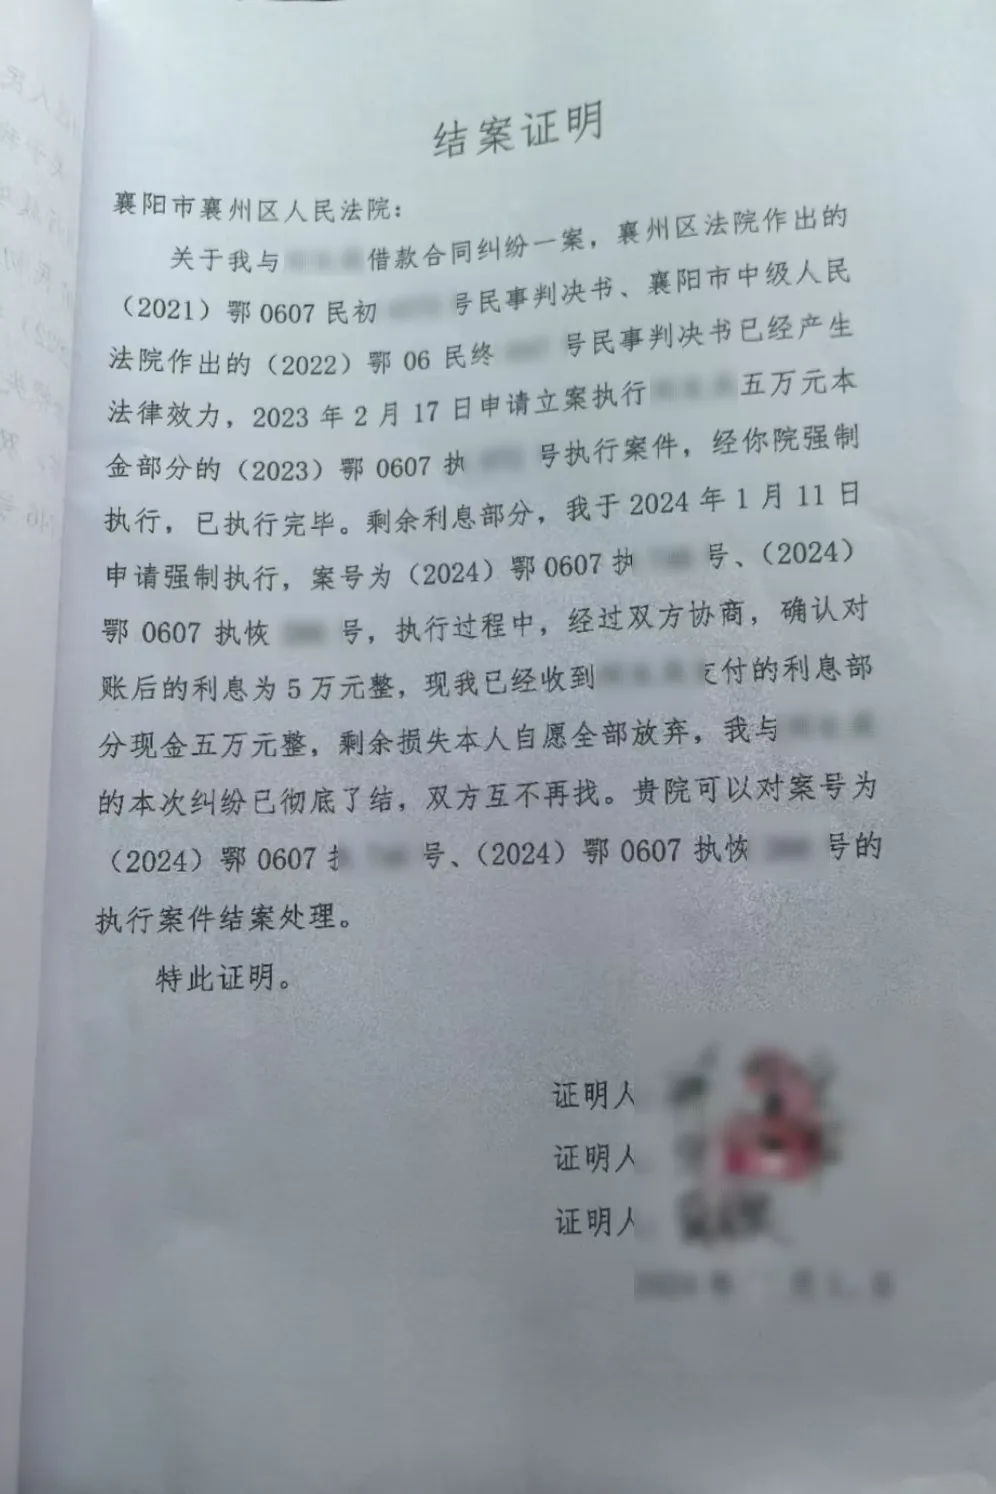 结案证明
襄阳市襄州区人民法院：
关于我与借款合同纠纷一案，襄州区法院作出的
（2021）鄂 0607 民初 号民事判决书、襄阳市中级人民
法院作出的（2022）鄂 06 民终 号民事判决书已经产生
法律效力，2023 年 2 月 17 日申请立案执行 五万元本
金部分的（2023）鄂 0607 执 号执行案件，经你院强制
执行，已执行完毕。剩余利息部分，我于 2024 年 1 月 11 日
申请强制执行，案号为（2024）鄂 0607 执 号、（2024）
鄂 0607 执恢 号，执行过程中，经过双方协商，确认对
账后的利息为 5 万元整，现我已经收到 支付的利息部
分现金五万元整，剩余损失本人自愿全部放弃，我与
的本次纠纷已彻底了结，双方互不再找。贵院可以对案号为
（2024）鄂 0607 号、（2024）鄂 0607 执恢 号的
执行案件结案处理。
特此证明。
证明人
证明人
证明人